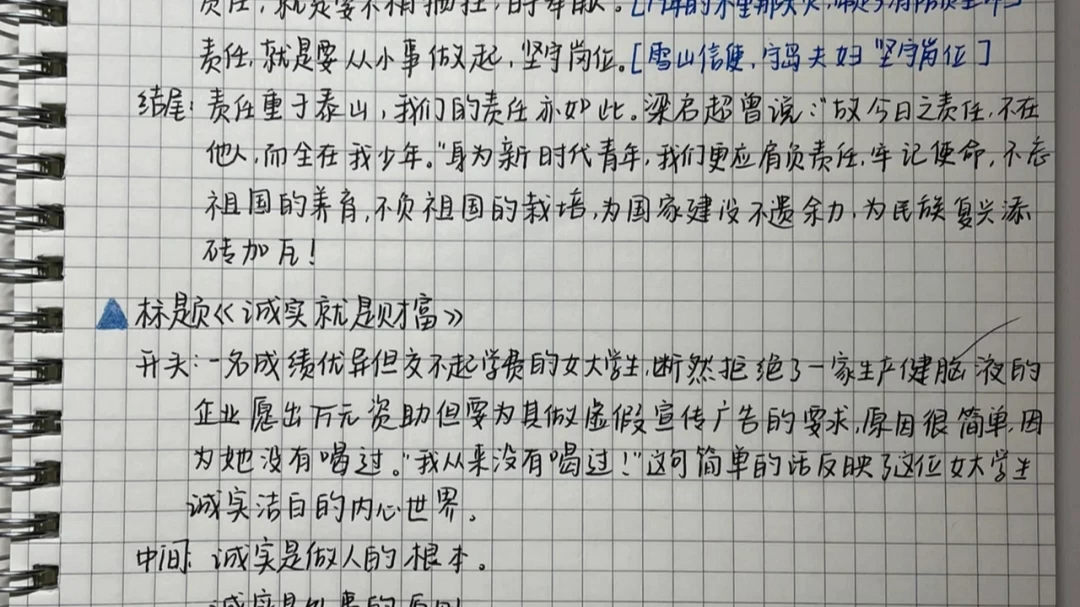 责任,就是要不惧
责任,就是要从小事做起,坚守岗位。[雪山信使,守岛夫妇坚守岗位]
结尾:责任重于泰山,我们的责任亦如此。梁启超曾说:"故今日之责任,不在
他人,而全在我少年。"身为新时代青年,我们更应肩负责任,牢记使命,不忘
祖国的养育,不负祖国的栽培,为国家建设不遗余力,为民族复兴添
砖加瓦!
标题《诚实就是财富》
开头:一名成绩优异但交不起学费的女大学生,断然拒绝了一家生产健脑液的
企业愿出万元资助但要为其做虚假宣传广告的要求,原因很简单,因
为她没有喝过。"我从来没有喝过!"这句简单的话反映了这位女大学生
诚实洁白的内心世界。
中间:诚实是做人的根本。
诚实是处事的原则